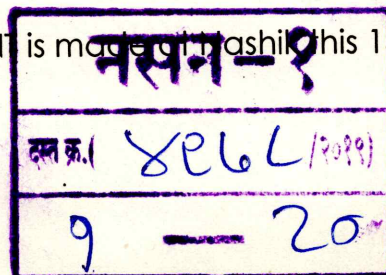 IT is made at Nashik this 1
नसन - १
दस्त क्र.( ४९७८ /२०११)
१ — २०